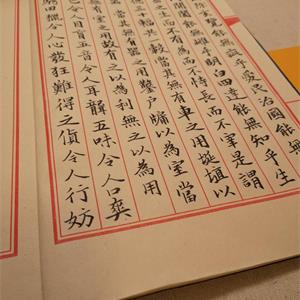 除玄覽能無疵乎愛民治國能無
開闔能無雌乎明白四達能無知乎生
之生而不有為而不恃長而不宰是謂
輻共一轂當其無有車之用埏埴以
當其無有器之用鑿戶牖以為室當
室之用故有之以為利無之以為用
令人目盲五音令人耳聾五味令人口爽
田獵令人心發狂難得之貨令人行妨